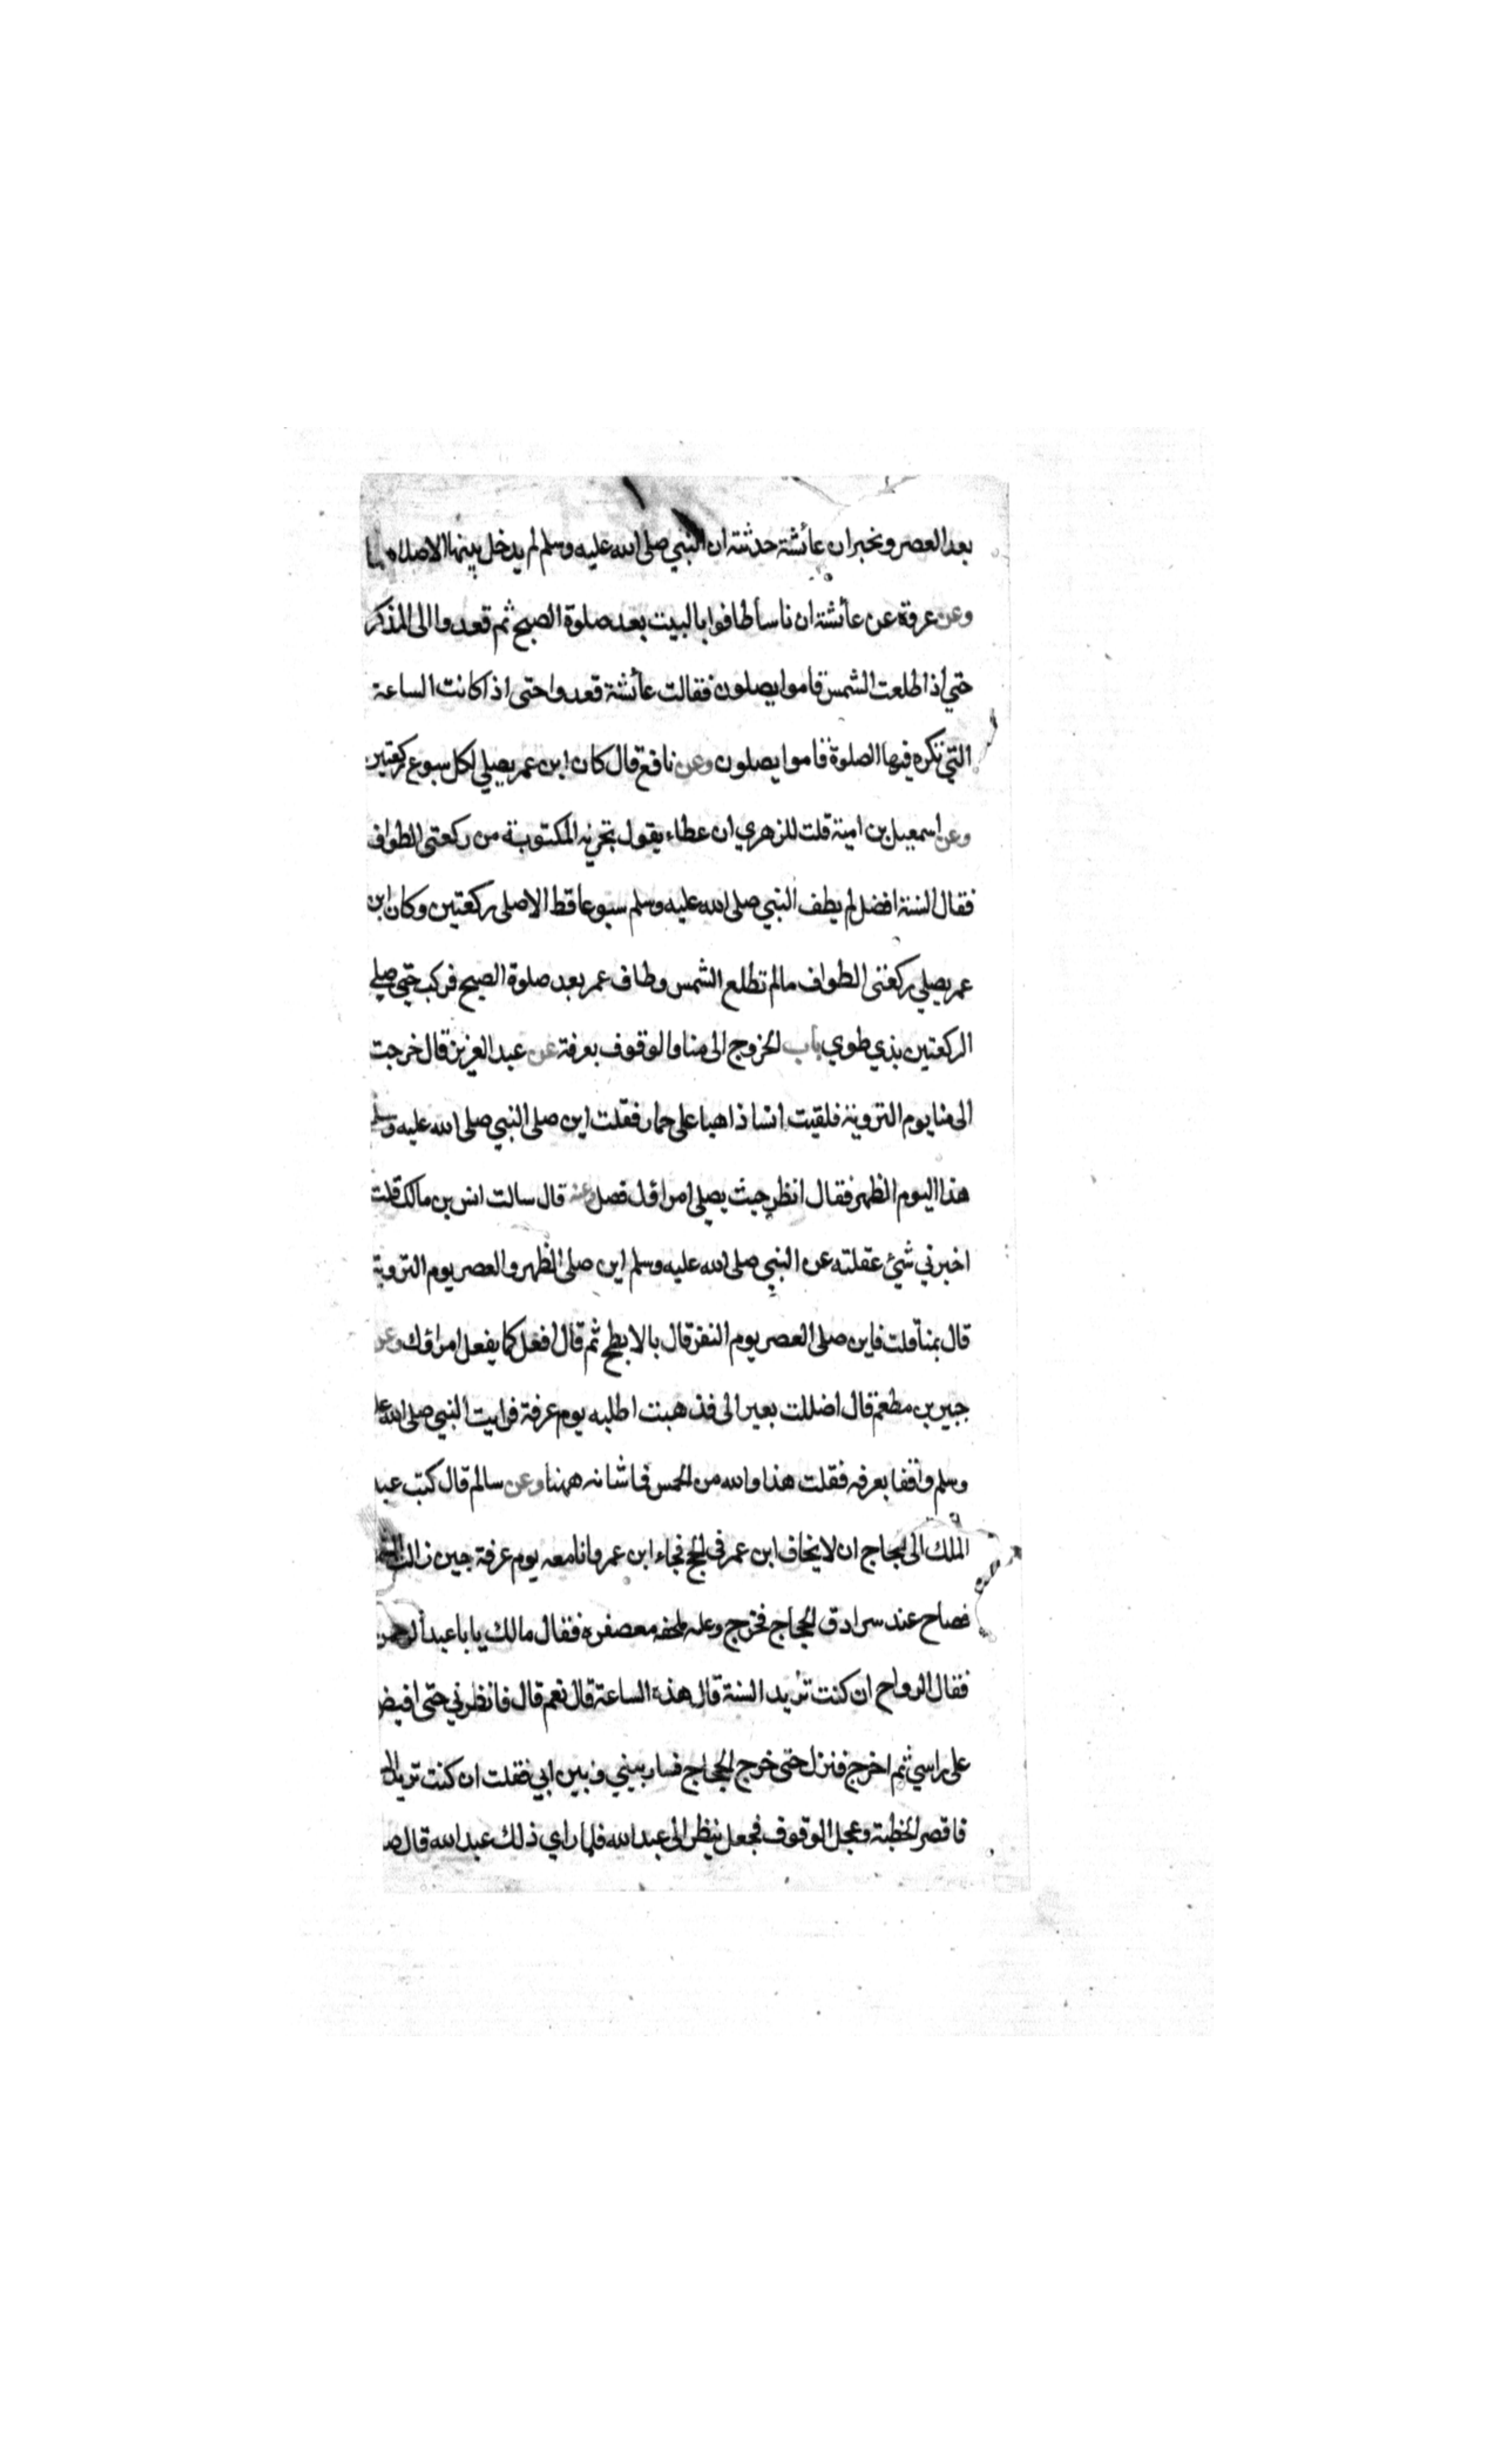 بعد العصر ويخبر ان عائشة حدثته ان النبي صلى الله عليه وسلم لم يدخل بيتها الا صلاهما
وعن عروة عن عائشة ان ناسا طافوا بالبيت بعد صلوة الصبح ثم قعدوا الى المذكر
حتي اذا طلعت الشمس قاموا يصلون فقالت عائشة قعدوا حتى اذا كانت الساعة
التي تكره فيها الصلوة قاموا يصلون وعن نافع قال كان ابن عمر يصلي لكل سبوع ركعتين
وعن اسمعيل بن امية قلت للزهري ان عطاء يقول تجزيه المكتوبة من ركعتى الطواف
فقال السنة افضل لم يطف النبي صلى الله عليه وسلم سبوعا قط الا صلى ركعتين وكان ابن
عمر يصلي ركعتى الطواف مالم تطلع الشمس وطاف عمر بعد صلوة الصبح فركب حتي صلي
الركعتين بذي طوي باب الخروج الى منا والوقوف بعرفة عن عبد العزيز قال خرجت
الى منا يوم التروية فلقيت انسا ذاهبا على حمار فقلت اين صلى النبي صلى الله عليه وسلم
هذا اليوم الظهر فقال انظر حيث يصلي امراؤك فصل وعنه قال سالت انس بن مالك قلت
اخبرني شئ عقلته عن النبي صلى الله عليه وسلم اين صلى الظهر والعصر يوم التروية
قال بمنا قلت فاين صلى العصر يوم النفر قال بالابطح ثم قال افعل كما يفعل امراؤك وعن
جبير بن مطعم قال اضللت بعيرا لى فذهبت اطلبه يوم عرفة فرايت النبي صلى الله عليه
وسلم واقفا بعرفه فقلت هذا والله من الحمس فما شانه ههنا وعن سالم قال كتب عبد
الملك الى الحجاج ان لا يخاف ابن عمر فى الحج فجاء ابن عمر وانا معه يوم عرفة حين زالت الشمس
فصاح عند سرادق الحجاج فخرج وعليه ملحفه معصفره فقال مالك يابا عبد الرحمن
فقال الرواح ان كنت تريد السنة قال هذه الساعة قال نعم قال فانظرني حتى افيض
على راسي ثم اخرج فنزل حتى خرج الحجاج فسار بيني وبين ابي فقلت ان كنت تريد
فاقصر الخطبة وعجل الوقوف فجعل ينظر الى عبد الله فلما راي ذلك عبد الله قال